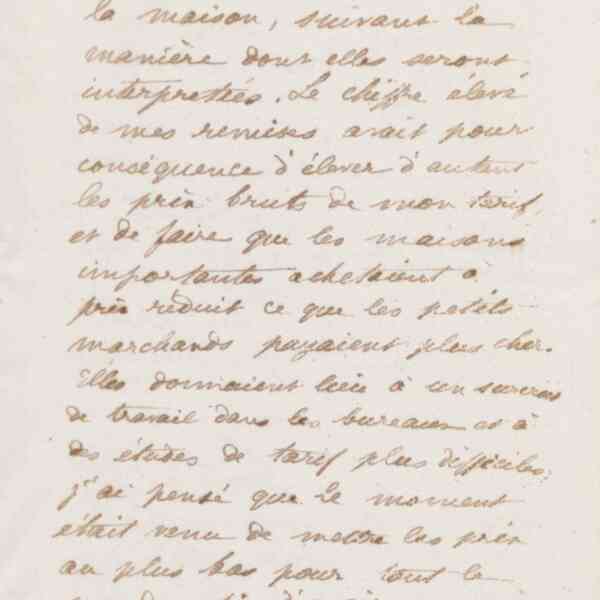 la maison, suivant la
manière dont elles seront
interpretées. Le chiffre élevé
de mes remises avait pour
conséquence d'élever d'autant
les prix bruts de mon tarif,
et de faire que les maisons
importantes achetaient à
prix reduit ce que les petits
marchands payaient plus cher.
Elles donnaient lieu à un surcroit
de travail dans les bureaux et à
des études de tarif plus difficiles.
j'ai pensé que le moment
était venu de mettre les prix
au plus bas pour tout le